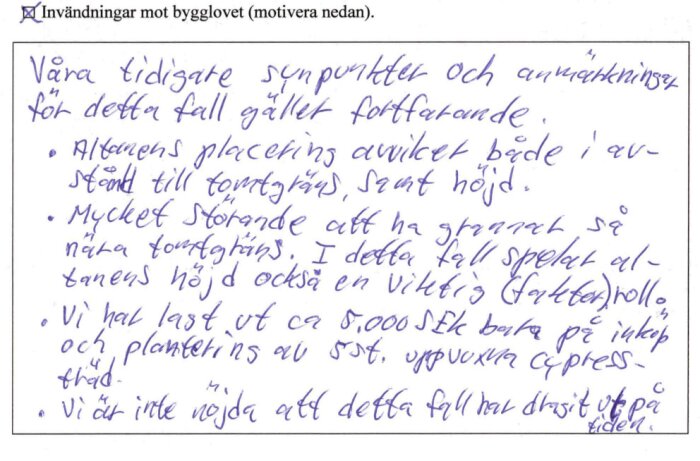 Invändningar mot bygglovet (motivera nedan).
Våra tidigare synpunkter och anmärkningar
för detta fall gäller fortfarande.
• Altanens placering avviker både i av-
stånd till tomtgräns, samt höjd.
• Mycket störande att ha grannar så
nära tomtgräns. I detta fall spelar al-
tanens höjd också en viktig (faktor) roll.
• Vi har lagt ut ca 5.000 SEK bara på inköp
och plantering av 5 st. uppvuxna cypress-
träd.
• Vi är inte nöjda att detta fall har dragit ut på
tiden.